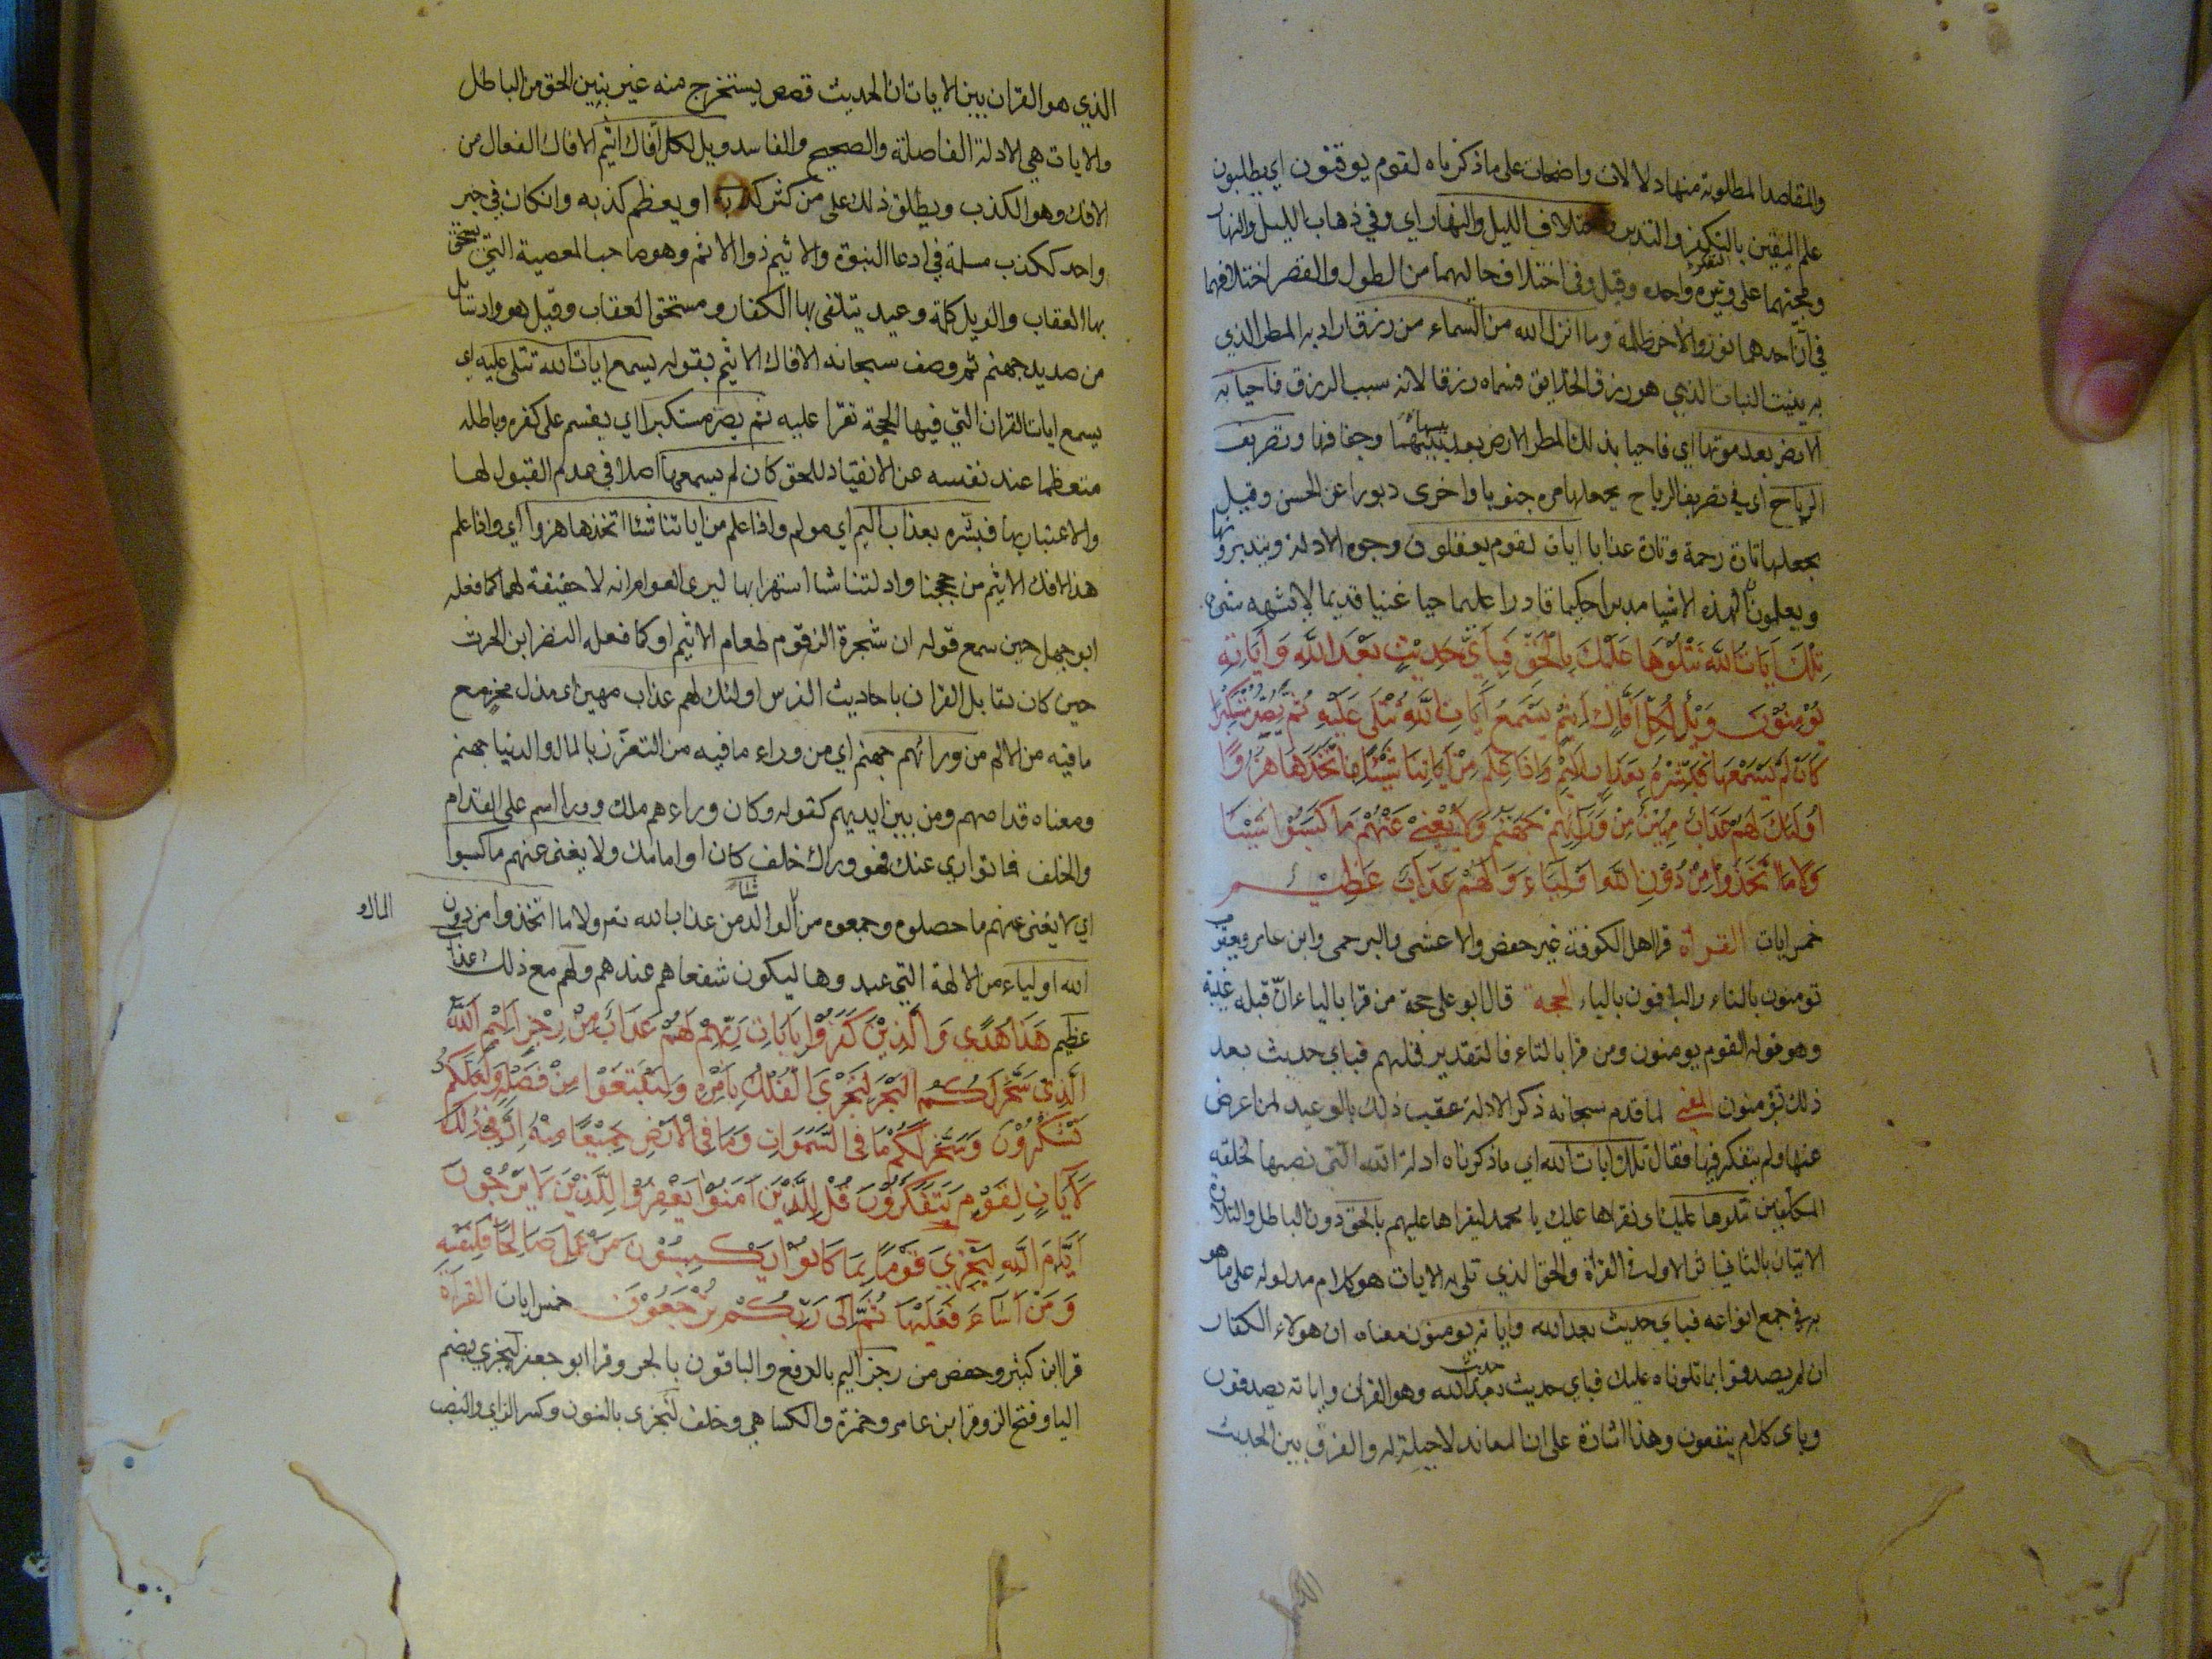 والمقاصد المطلوبة منها دلالات واضحات على ما ذكرناه لقوم يوقنون اي يطلبون
علم اليقين بالتفكر والتدبر واختلاف الليل والنهار اي وفي ذهاب الليل والنهار
ومجئهما على وتيرة واحدة وقيل وفي اختلاف حاليهما من الطول والقصر اختلافهما
في ان احدهما نور والاخر ظلمة وما انزل الله من السماء من رزق اراد به المطر الذي
به ينبت النبات الذي هو رزق الخلايق فسماه رزقا لانه سبب الرزق فاحيا به
الارض بعد موتها اي فاحيا بذلك المطر الارض بعد يبسها وجفافها وتصريف
الرياح اي في تصريف الرياح يجعلها مره جنوبا واخرى دبورا عن الحسن وقيل
يجعلها تارة رحمة وتارة عذابا ايات لقوم يعقلون وجوه الادلة ويتدبرونها
ويعلمون ان لهذه الاشيا مدبرا حكيما قادرا عليما حيا غنيا قديما لا يشبهه شيء
تِلْكَ آيَاتُ اللَّهِ نَتْلُوْهَا عَلَيْكَ بِالْحَقِّ فَبِأَيِّ حَدِيْثٍ بَعْدَ اللَّهِ وَآيَاتِهِ
يُوْمِنُوْنَ وَيْلٌ لِكُلِّ اَفَّاكٍ اَثِيْمٍ يَسْمَعُ آيَاتِ اللَّهِ تُتْلَى عَلَيْهِ ثُمَّ يُصِرُّ مُسْتَكْبِرًا
كَانْ لَمْ يَسْمَعْهَا فَبَشِّرْهُ بِعَذَابٍ اَلِيْمٍ وَاِذَا عَلِمَ مِنْ اٰيَاتِنَا شَيْئًا اتَّخَذَهَا هُزُوًا
اُولَئِكَ لَهُمْ عَذَابٌ مُهِيْنٌ مِنْ وَرَائِهِمْ جَهَنَّمُ وَلَا يُغْنِيْ عَنْهُمْ مَا كَسَبُوْا شَيْئًا
وَلَا مَا اتَّخَذُوْا مِنْ دُوْنِ اللَّهِ اَوْلِيَاءَ وَلَهُمْ عَذَابٌ عَظِيْم
خمس ايات القراة قرا اهل الكوفة غير حفص والاعشى والبرجمى وابن عامر ويعقوب
تومنون بالتاء والباقون بالياء الحجة قال ابو على حجة من قرا بالياء انّ قبله غيبة
وهو قوله لقوم يومنون ومن قرا بالتاء فالتقدير قل لهم فباي حديث بعد
ذلك تؤمنون المعنى لما قدم سبحانه ذكر الادلة عقب ذلك بالوعيد لمن اعرض
عنها ولم يتفكر فيها فقال تلك ايات الله اي ما ذكرناه ادلة الله التي نصبها لخلقه
المكلفين نتلوها عليك اى نقراها عليك يا محمد لتقراها عليهم بالحق دون الباطل والتلاوة
الاتيان بالثاني في اثر الاول في القراة والحق الذي تتلى به الايات هو كلام مدلوله على ما هو
به في جمع انواعه فباي حديث بعد الله واياته يومنون معناه ان هولاء الكفار
ان لم يصدقوا بما تلوناه عليك فباي حديث بعد حديث الله وهو القران واياته يصدقون
وباى كلام ينتفعون وهذا اشارة على ان المعاند لا حيلة له والفرق بين الحديث
الذي هو القران وبين الايات ان الحديث قصص يستخرج منه عبر يبين الحق من الباطل
والايات هي الادلة الفاصلة والصحيح والفاسد ويل لكل افاك اثيم الافاك الفعال من
الافك وهو الكذب ويطلق ذلك على من كثر كذبه او يعظم كذبه وان كان في خبر
واحد ككذب مسلمة في ادعا النبوة والاثيم ذو الاثم وهو صاحب المعصية التي يستحق
بها العقاب والويل كلمة وعيد يتلقى بها الكفار ومستحق العقاب وقيل هو واد سائل
من صديد جهنم ثم وصف سبحانه الافاك الاثيم بقوله يسمع ايات الله تتلى عليه اي
يسمع ايات القران التي فيها الحجة تقرا عليه ثم يصرّ مستكبرا اي يقسم على كفره وباطله
متعظما عند نفسه عن الانقياد للحق كان لم يسمعها اصلا في عدم القبول لها
والاعتبار بها فبشّره بعذاب اليم اي مولم واذا علم من اياتنا شيئا اتخذها هزوا اي واذا علم
هذا الافك الاثيم من حججنا وادلتنا شيا استهزا بها ليرى العوام انه لا حقيقة لها كما فعله
ابو جهل حين سمع قوله ان شجرة الزقوم طعام الاثيم او كما فعله النضر ابن الحرث
حين كان يقابل القران باحاديث الفرس اولئك لهم عذاب مهين اى مذل مخز مع
ما فيه من الالم من ورائهم جهنم اي من وراء ما فيه من التعزز بالمال والدنيا جهنم
ومعناه قدامهم ومن بين ايديهم كقوله وكان وراءهم ملك وورا اسم على القدام
والخلف فما توارى عنك فهو وراك خلف كان او امامك ولا يغنى عنهم ما كسبوا
شيأ
اي لا يغنى عنهم ما حصلوه وجمعوه من الوالد من عذاب الله ولا ما اتخذوا من دون
المال و
الله اولياء من الالهة التى عبدوها ليكون شفعاهم عندهم ولهم مع ذلك عذاب
عظيم هَذَا هُدًى وَالَّذِيْنَ كَفَرُوْا بِآيَاتِ رَبِّهِمْ لَهُمْ عَذَابٌ مِنْ رِجْزٍ اَلِيْمٍ اللَّهُ
الَّذِيْ سَخَّرَ لَكُمُ الْبَحْرَ لِتَجْرِيَ الْفُلْكُ بِاَمْرِهِ وَلِتَبْتَغُوْا مِنْ فَضْلِهِ وَلَعَلَّكُمْ
تَشْكُرُوْنَ وَسَخَّرَ لَكُمْ مَا فِي السَّمَوَاتِ وَمَا فِي الْاَرْضِ جَمِيْعًا مِنْهُ اِنَّ فِيْ ذَلِكَ
لَآيَاتٍ لِقَوْمٍ يَتَفَكَّرُوْنَ قُلْ لِلَّذِيْنَ آمَنُوْا يَغْفِرُوْا لِلَّذِيْنَ لَا يَرْجُوْنَ
اَيَّامَ اللَّهِ لِيَجْزِيَ قَوْمًا بِمَا كَانُوْا يَكْسِبُوْنَ مَنْ عَمِلَ صَالِحًا فَلِنَفْسِهِ
وَمَنْ اَسَاءَ فَعَلَيْهَا ثُمَّ اِلَى رَبِّكُمْ تُرْجَعُوْنَ خمس ايات القراة
قرا ابن كثير وحفص من رجز اليم بالرفع والباقون بالجر وقرا ابو جعفر ليجزي بضم
اليا وفتح الز وقرا ابن عامر وحمزة والكساهي وخلف لنجزى بالنون وكسر الزاي والنصب